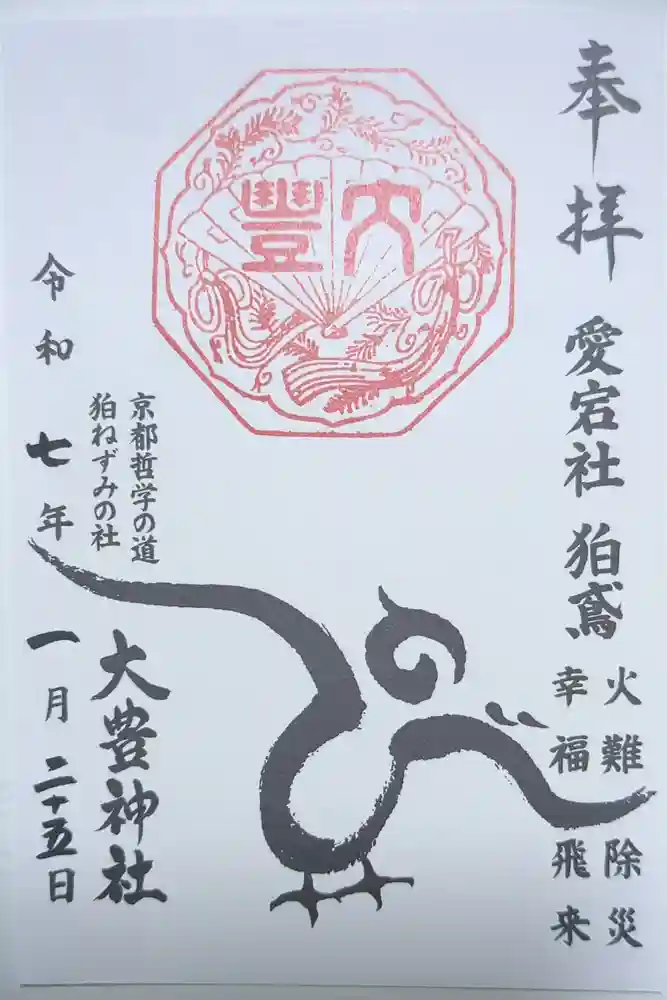 奉拝
愛宕社 狛鳶
火難除災
幸福飛来
大豊
京都哲学の道
狛ねずみの社
大豊神社
令和七年一月二十五日